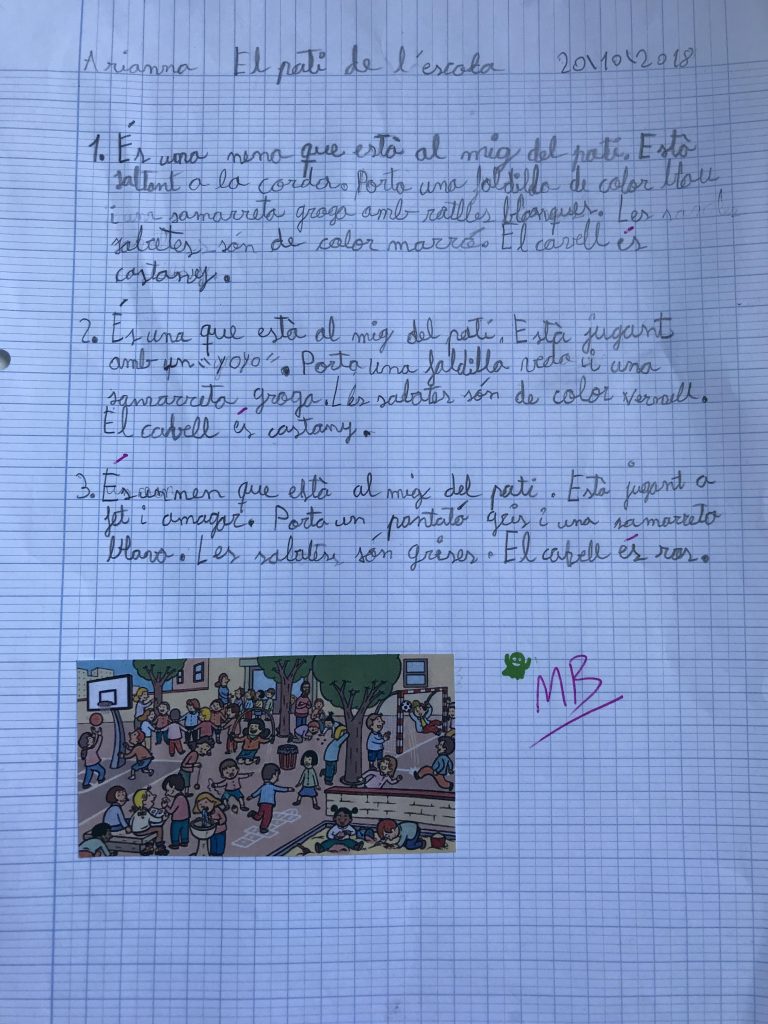 Arianna El pati de l'escola 20\10\2018
1. És una nena que està al mig del pati. Està
saltant a la corda. Porta una faldilda de color blau
i una samarreta groga amb ratlles blanques. Les
sabetes són de color marró. El cavell és
castany.
2. És una que està al mig del pati. Està jugant
amb un "yoyo". Porta una faldilla veda i una
samarreta groga. Les sabates són de color vermell.
El cabell és castany.
3. És un nen que està al mig del pati. Està jugant a
fet i amagar. Porta un pantaló gris i una samarreta
blava. Les sabates són grises. El cabell és ros.
MB